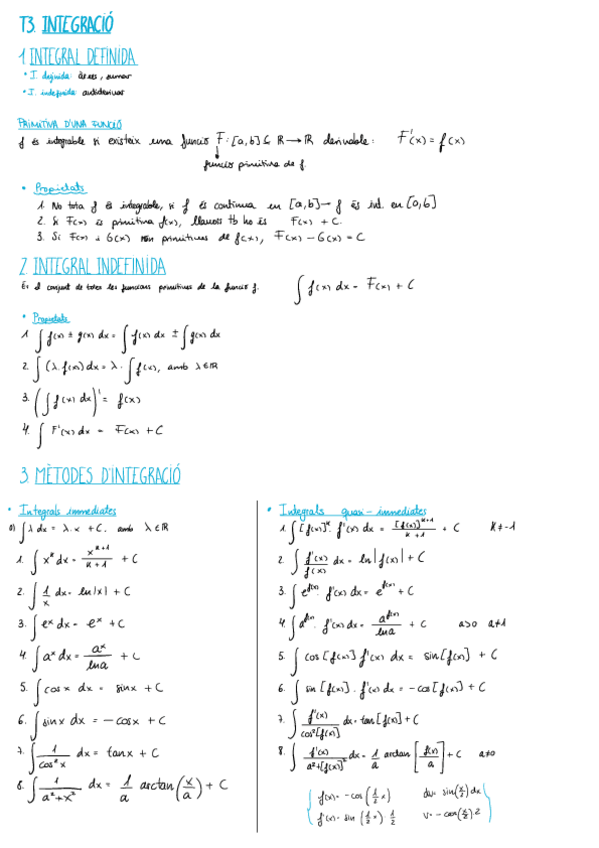 T3. INTEGRACIÓ
1. INTEGRAL DEFINIDA
• I. definida: àrees, sumar
• I. indefinida: antiderivar
PRIMITIVA D'UNA FUNCIÓ
f és integrable si existeix una funció F: [a,b] ⊆ ℝ → ℝ derivable: F'(x) = f(x)
funció primitiva de f.
• Propietats
1. No tota f és integrable, si f és contínua en [a,b] → f és int. en [a,b]
2. Si F(x) és primitiva f(x), llavors tb ho és F(x) + C.
3. Si F(x) i G(x) són primitives de f(x), F(x) - G(x) = C
2. INTEGRAL INDEFINIDA
És el conjunt de totes les funcions primitives de la funció f. ∫ f(x) dx = F(x) + C
• Propietats
1. ∫ f(x) ± g(x) dx = ∫ f(x) dx ± ∫ g(x) dx
2. ∫ (λ · f(x)) dx = λ · ∫ f(x), amb λ ∈ ℝ
3. (∫ f(x) dx)' = f(x)
4. ∫ F'(x) dx = F(x) + C
3 MÈTODES D'INTEGRACIÓ
• Integrals immediates
0) ∫ λ dx = λ · x + C. amb λ ∈ ℝ
1. ∫ x^k dx = x^(k+1)/(k+1) + C
2. ∫ 1/x dx = ln|x| + C
3. ∫ e^x dx = e^x + C
4. ∫ a^x dx = a^x/ln a + C
5. ∫ cos x dx = sin x + C
6. ∫ sin x dx = -cos x + C
7. ∫ 1/cos²x dx = tan x + C
8. ∫ 1/(a²+x²) dx = 1/a arctan(x/a) + C
• Integrals quasi-immediates
1. ∫ [f(x)]^k · f'(x) dx = [f(x)]^(k+1)/(k+1) + C k ≠ -1
2. ∫ f'(x)/f(x) dx = ln|f(x)| + C
3. ∫ e^f(x) · f'(x) dx = e^f(x) + C
4. ∫ a^f(x) · f'(x) dx = a^f(x)/ln a + C a>0 a≠1
5. ∫ cos [f(x)] f'(x) dx = sin [f(x)] + C
6. ∫ sin [f(x)] · f'(x) dx = -cos [f(x)] + C
7. ∫ f'(x)/cos²[f(x)] dx = tan [f(x)] + C
8. ∫ f'(x)/(a²+[f(x)]²) dx = 1/a arctan [f(x)/a] + C a≠0
f(x) = -cos (1/2 x) dv = sin(x/2) dx
f'(x) = sin (1/2 x) · 1/2 v = -cos(x/2) · 2